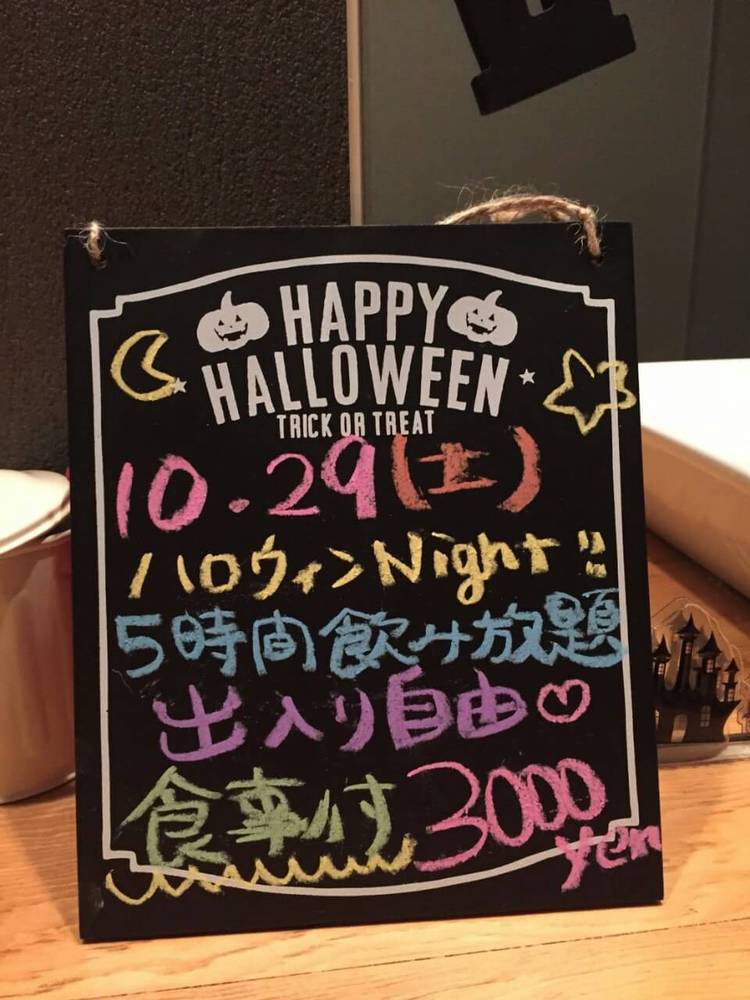 HAPPY
HALLOWEEN
TRICK OR TREAT
10.29(土)
ハロウィンNight!!
5時間飲み放題
出入り自由♡
食事付3000
yen